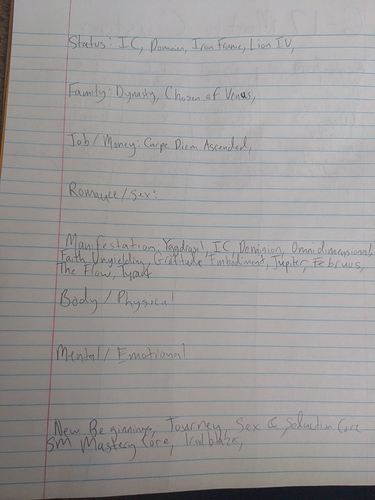 Status: IC, Dominion, Iron Frame, Lion IV,
Family: Dynasty, Chosen of Venus,
Job/Money: Carpe Diem Ascended,
Romance/Sex:
Manifestation: Yggdrasil, IC, Dominion, Omnidimensional,
Faith Unyielding, Gratitude Embodiment, Jupiter, Februus,
The Flow, Tyrant
Body / Physical
Mental / Emotional
New Beginnings, Journey, Sex & Seduction Core
SM Mastery Core,